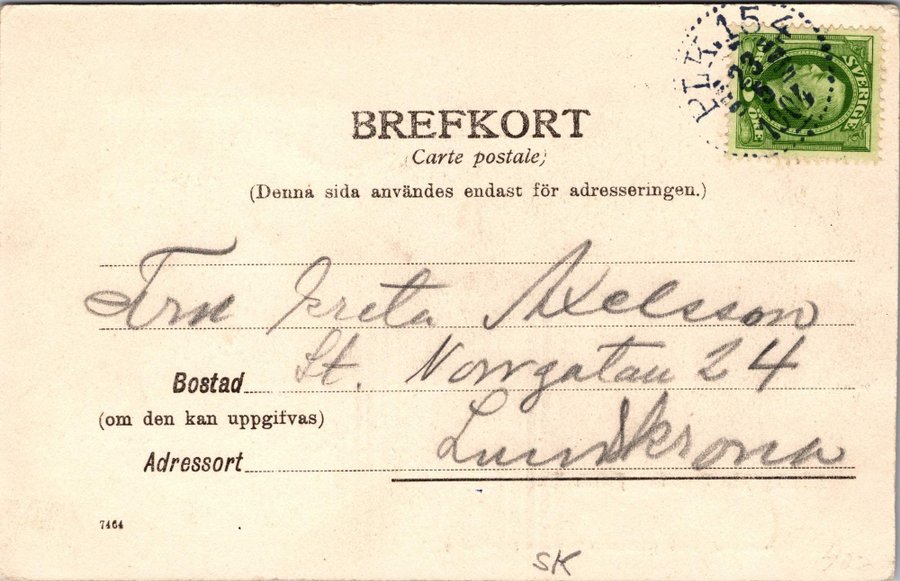 PLK.15 4
23
1904
SVERIGE
BREFKORT
(Carte postale)
(Denna sida användes endast för adresseringen.)
Fru Greta Axelsson
Bostad St. Norrgatan 24
(om den kan uppgifvas)
Adressort Lundskrona
7464
SK